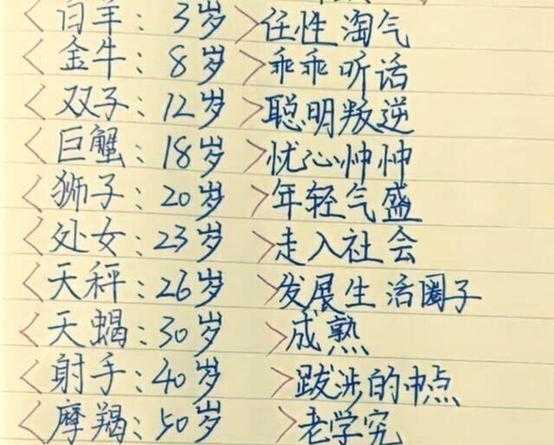 <白羊: 3岁>任性淘气
<金牛: 8岁>乖乖听话
<双子: 12岁>聪明叛逆
<巨蟹: 18岁>忧心忡忡
<狮子: 20岁>年轻气盛
<处女: 23岁>走入社会
<天秤: 26岁>发展生活圈子
<天蝎: 30岁>成熟
<射手: 40岁>跋涉的中点
<摩羯: 50岁>老学究